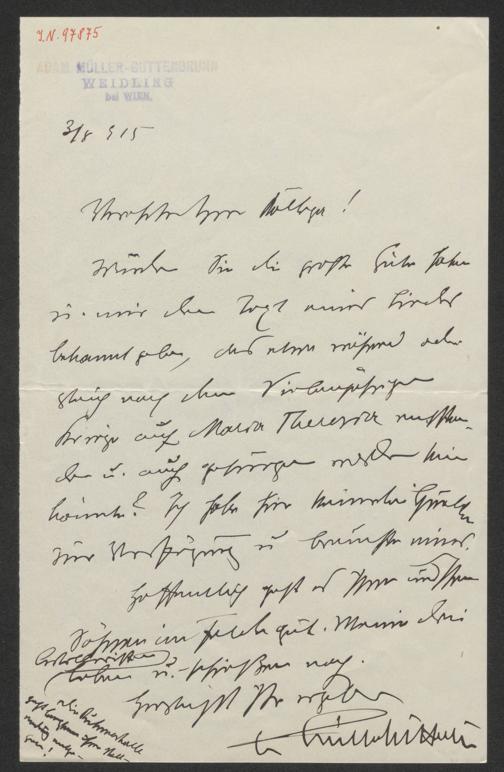 J.N. 97875
ADAM MÜLLER-GUTTENBRUNN
WEIDLING
bei WIEN.
3/8 915
Verehrter Herr Kollega!
Würden Sie die große Güte haben
u. mir den Text eines Liedes
bekannt geben, das etwa während oder
gleich nach dem Siebenjährigen
Kriege auf Maria Theresia entstan-
den u. auch gesungen worden sein
könnte? Ich habe hier keinerlei Quellen
zur Verfügung u. brauchte eines.
Hoffentlich geht es Ihnen und Ihren
Söhnen im Felde gut. Meine drei
leben u. schießen noch.
Herzlichst Ihr ergebener